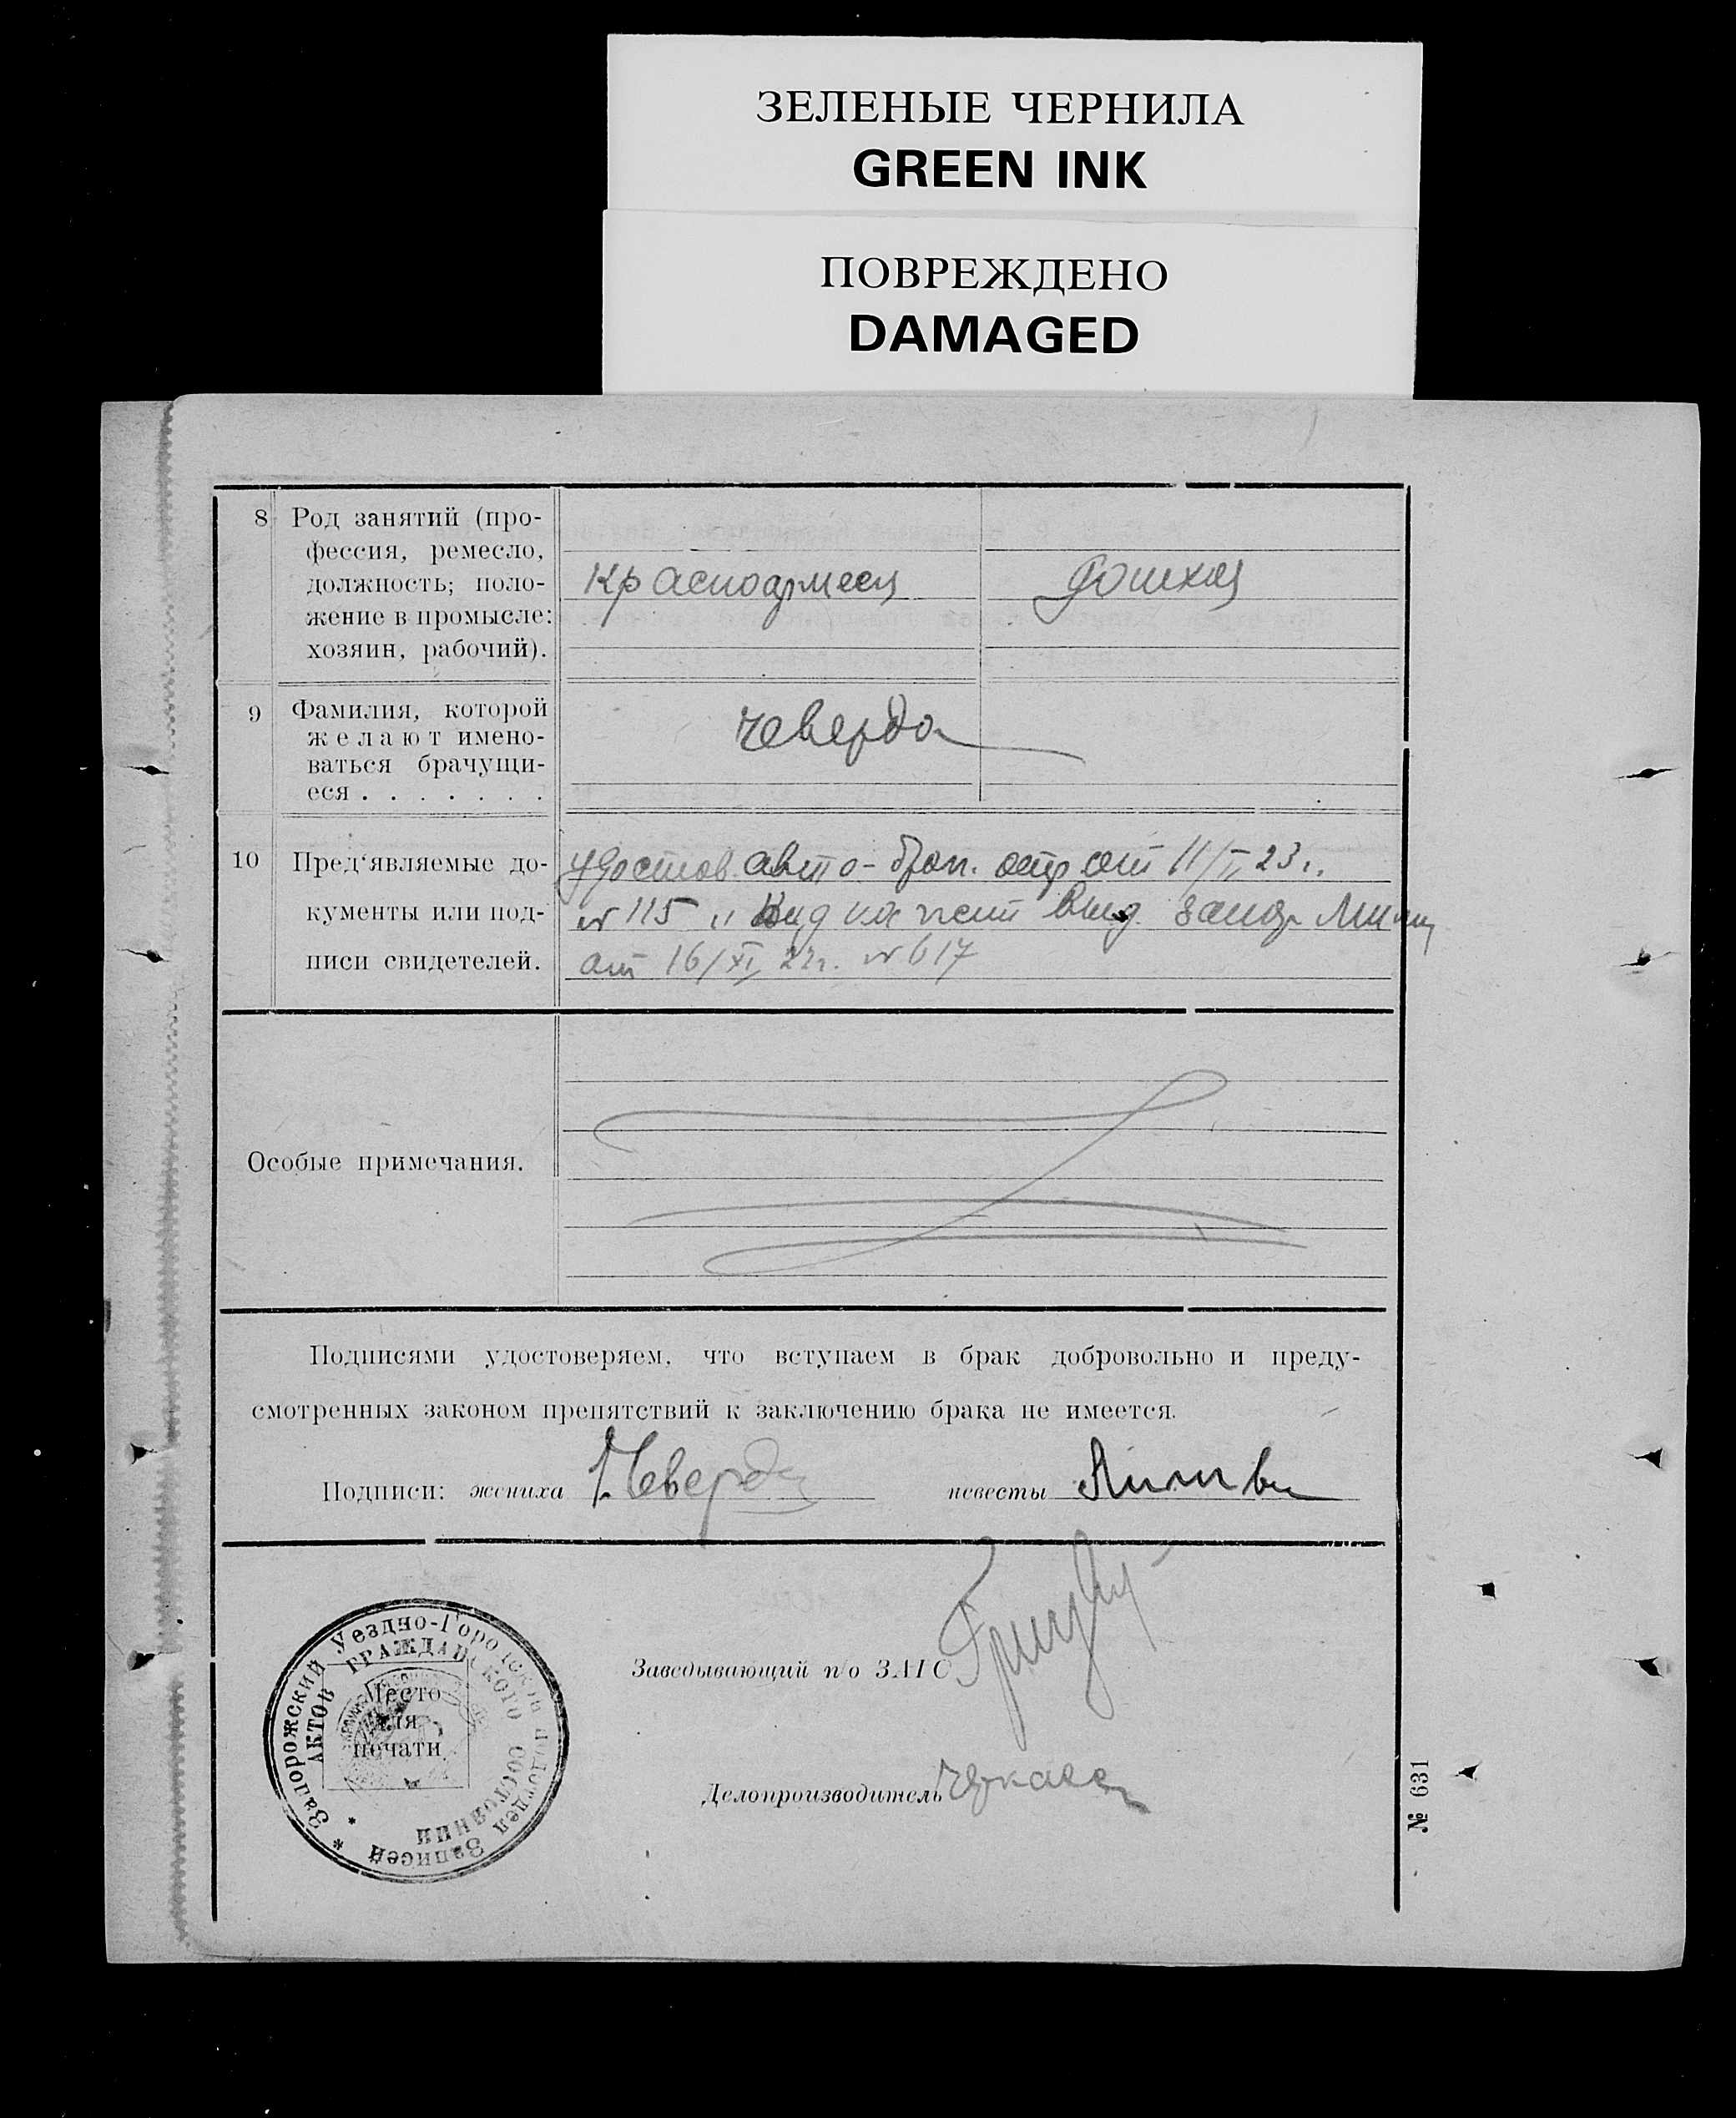 ЗЕЛЕНЫЕ ЧЕРНИЛА
GREEN INK
ПОВРЕЖДЕНО
DAMAGED
8 Род занятий (про-
фессия, ремесло,
должность; поло-
жение в промысле:
хозяин, рабочий).
Красноармеец
9 Фамилия, которой
желают имено-
ваться брачущи-
еся . . . . . . .
Чеверда
10 Пред‘являемые до-
кументы или под-
писи свидетелей.
удостов. авто-брон. от 11/II 23 г.
№ 115 Вид на жит выд. запор Милиц
от 16/XI 22г. № 617
Особые примечания.
Подписями удостоверяем, что вступаем в брак добровольно и преду-
смотренных законом препятствий к заключению брака не имеется.
Подписи: жениха Чеверда невесты
Запорожский Уездно-Городской подотдел Записей
АКТОВ ГРАЖДАНСКОГО СОСТОЯНИЯ
Место
для
печати
Заведывающий п/о ЗАГС
Делопроизводитель
№ 631